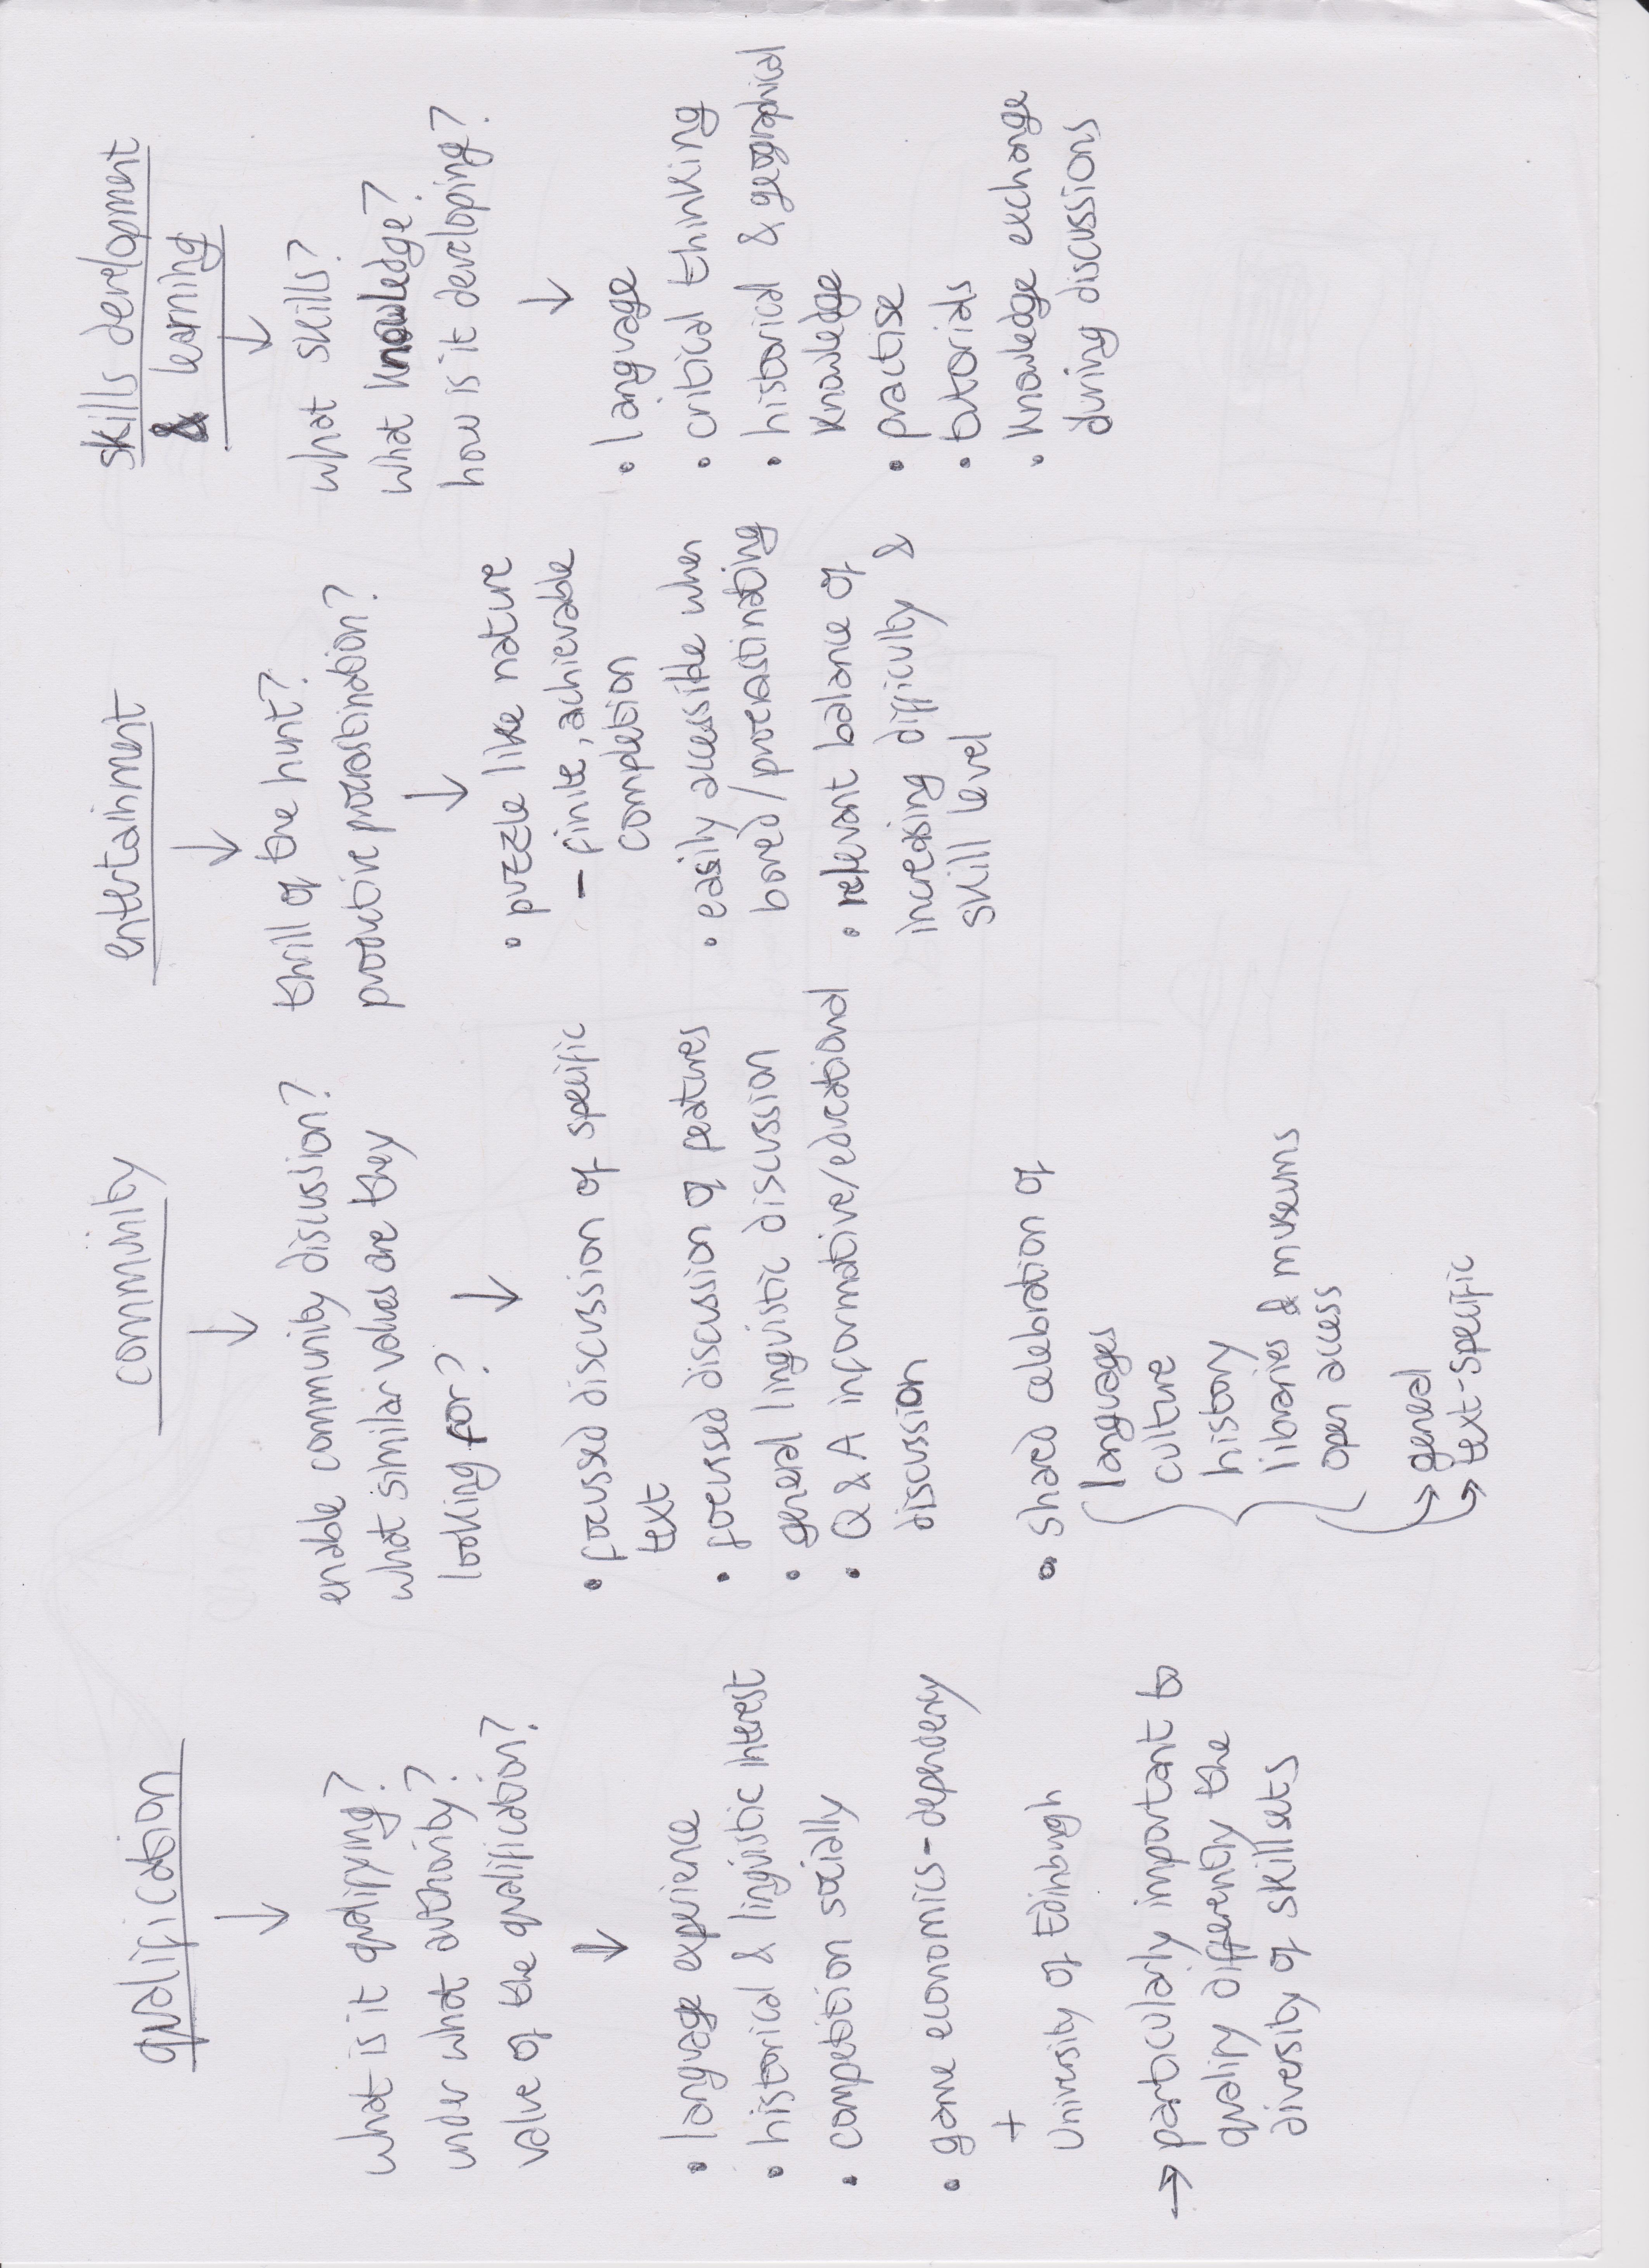 qualification
what is it qualifying?
under what authority?
value of the qualification?
• language experience
• historical & linguistic interest
• competition socially
• game economics-dependency
+
University of Edinburgh
→ particularly important to
qualify differently the
diversity of skillsets
community
enable community discussion?
what similar values are they
looking for?
• focussed discussion of specific
text
• focussed discussion of features
• general linguistic discussion
• Q & A informative/educational
discussion
• shared celebration of
languages
culture
history
libraries & museums
open access
→ general
→ text-specific
entertainment
thrill of the hunt?
productive procrastination?
• puzzle like nature
– finite, achievable
completion
• easily accessible when
bored/procrastinating
• relevant balance of
increasing difficulty &
skill level
skills development
& learning
what skills?
what knowledge?
how is it developing?
• language
• critical thinking
• historical & geographical
knowledge
• practise
• tutorials
• knowledge exchange
during discussions